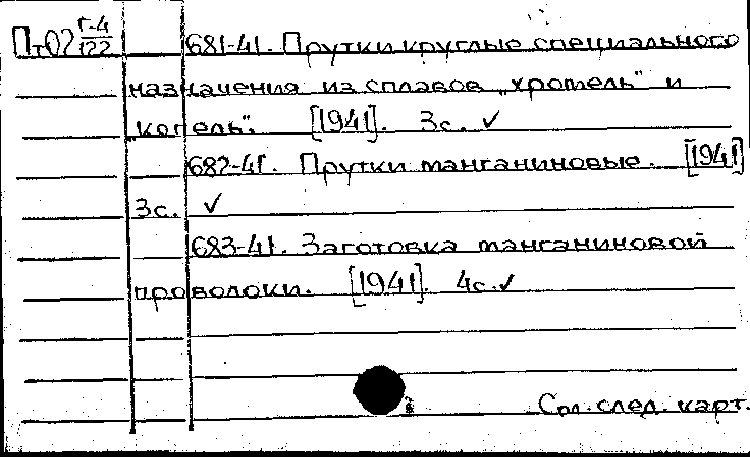 Пт02 Г-4/122 681-41. Прутки круглые специального
назначения из сплавов „хромель" и
„копель". [1941]. 3с. ✓
682-41. Прутки манганиновые. [1941]
3с. ✓
683-41. Заготовка манганиновой
проволоки. [1941]. 4с. ✓
См. след. карт.